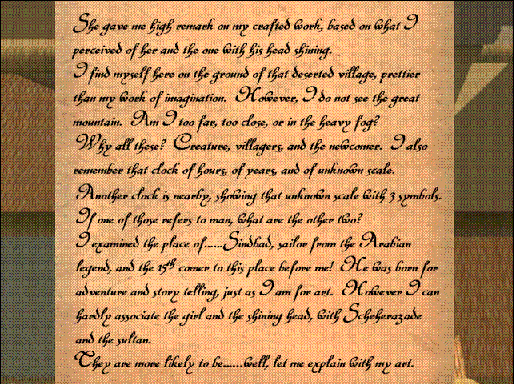 She gave me high remark on my crafted work, based on what I
perceived of her and the one with his head shining.
I find myself here on the ground of that deserted village, prettier
than my work of imagination. However, I do not see the great
mountain. Am I too far, too close, or in the heavy fog?
Why all these? Creature, villagers, and the newcomer. I also
remember that clock of hours, of years, and of unknown scale.
Another clock is nearby, showing that unknown scale with 3 symbols.
If one of those refers to man, what are the other two?
I examined the place of......Sindbad, sailor from the Arabian
legend, and the 15th comer to this place before me! He was born for
adventure and story telling, just as I am for art. However I can
hardly associate the girl and the shining head, with Scheherazade
and the sultan.
They are more likely to be......well, let me explain with my art.